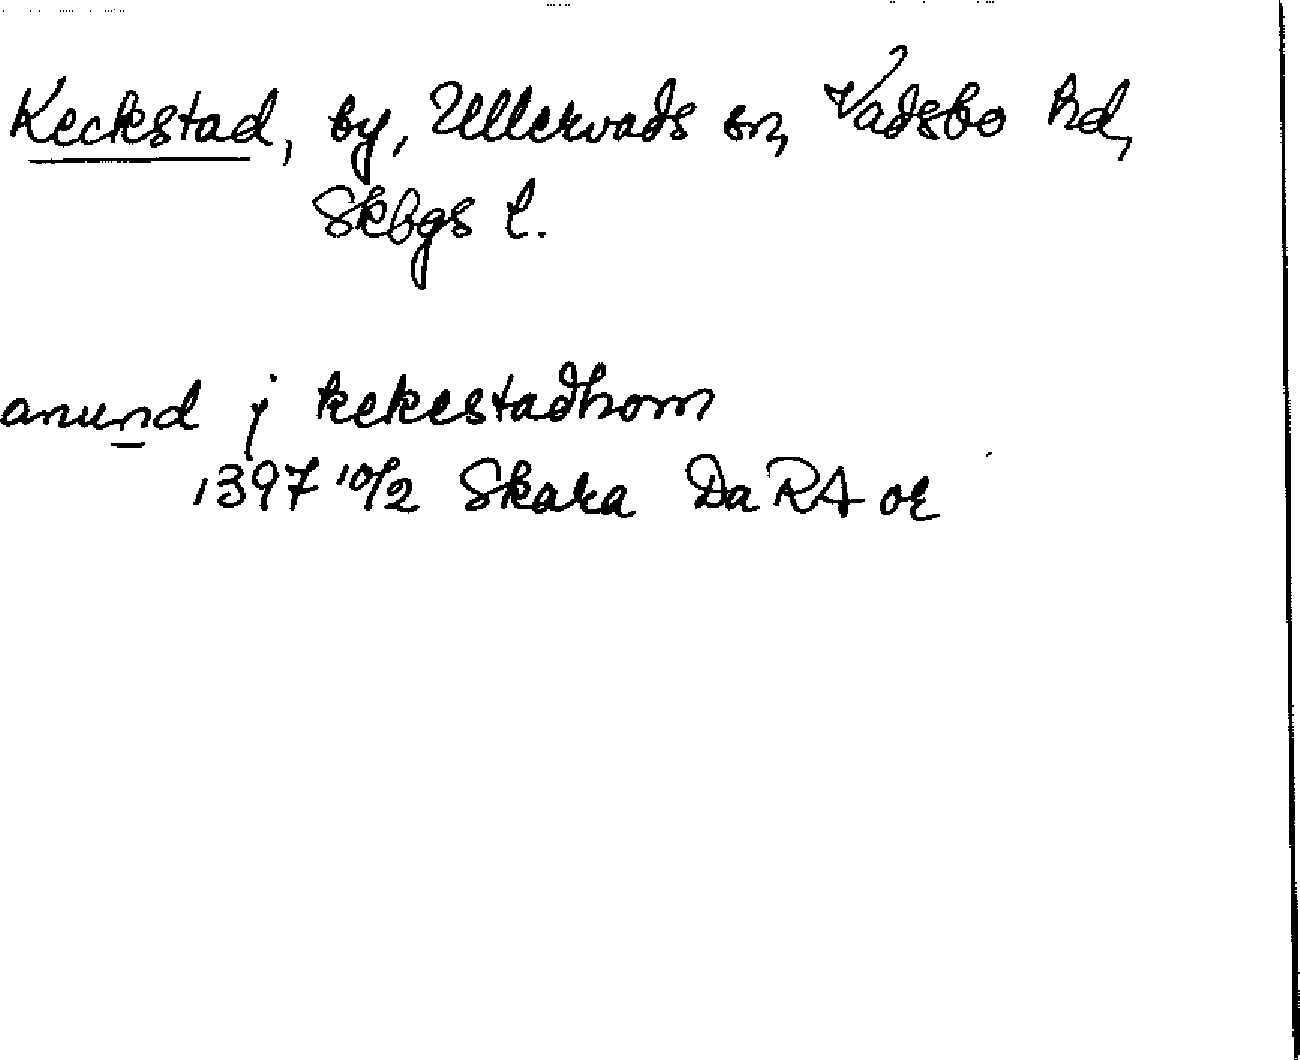 Keckstad, by, Ullervads sn, Vadsbo hd,
Skbgs l.
anund j kekestadhom
1397 10/2 Skara DaRA or